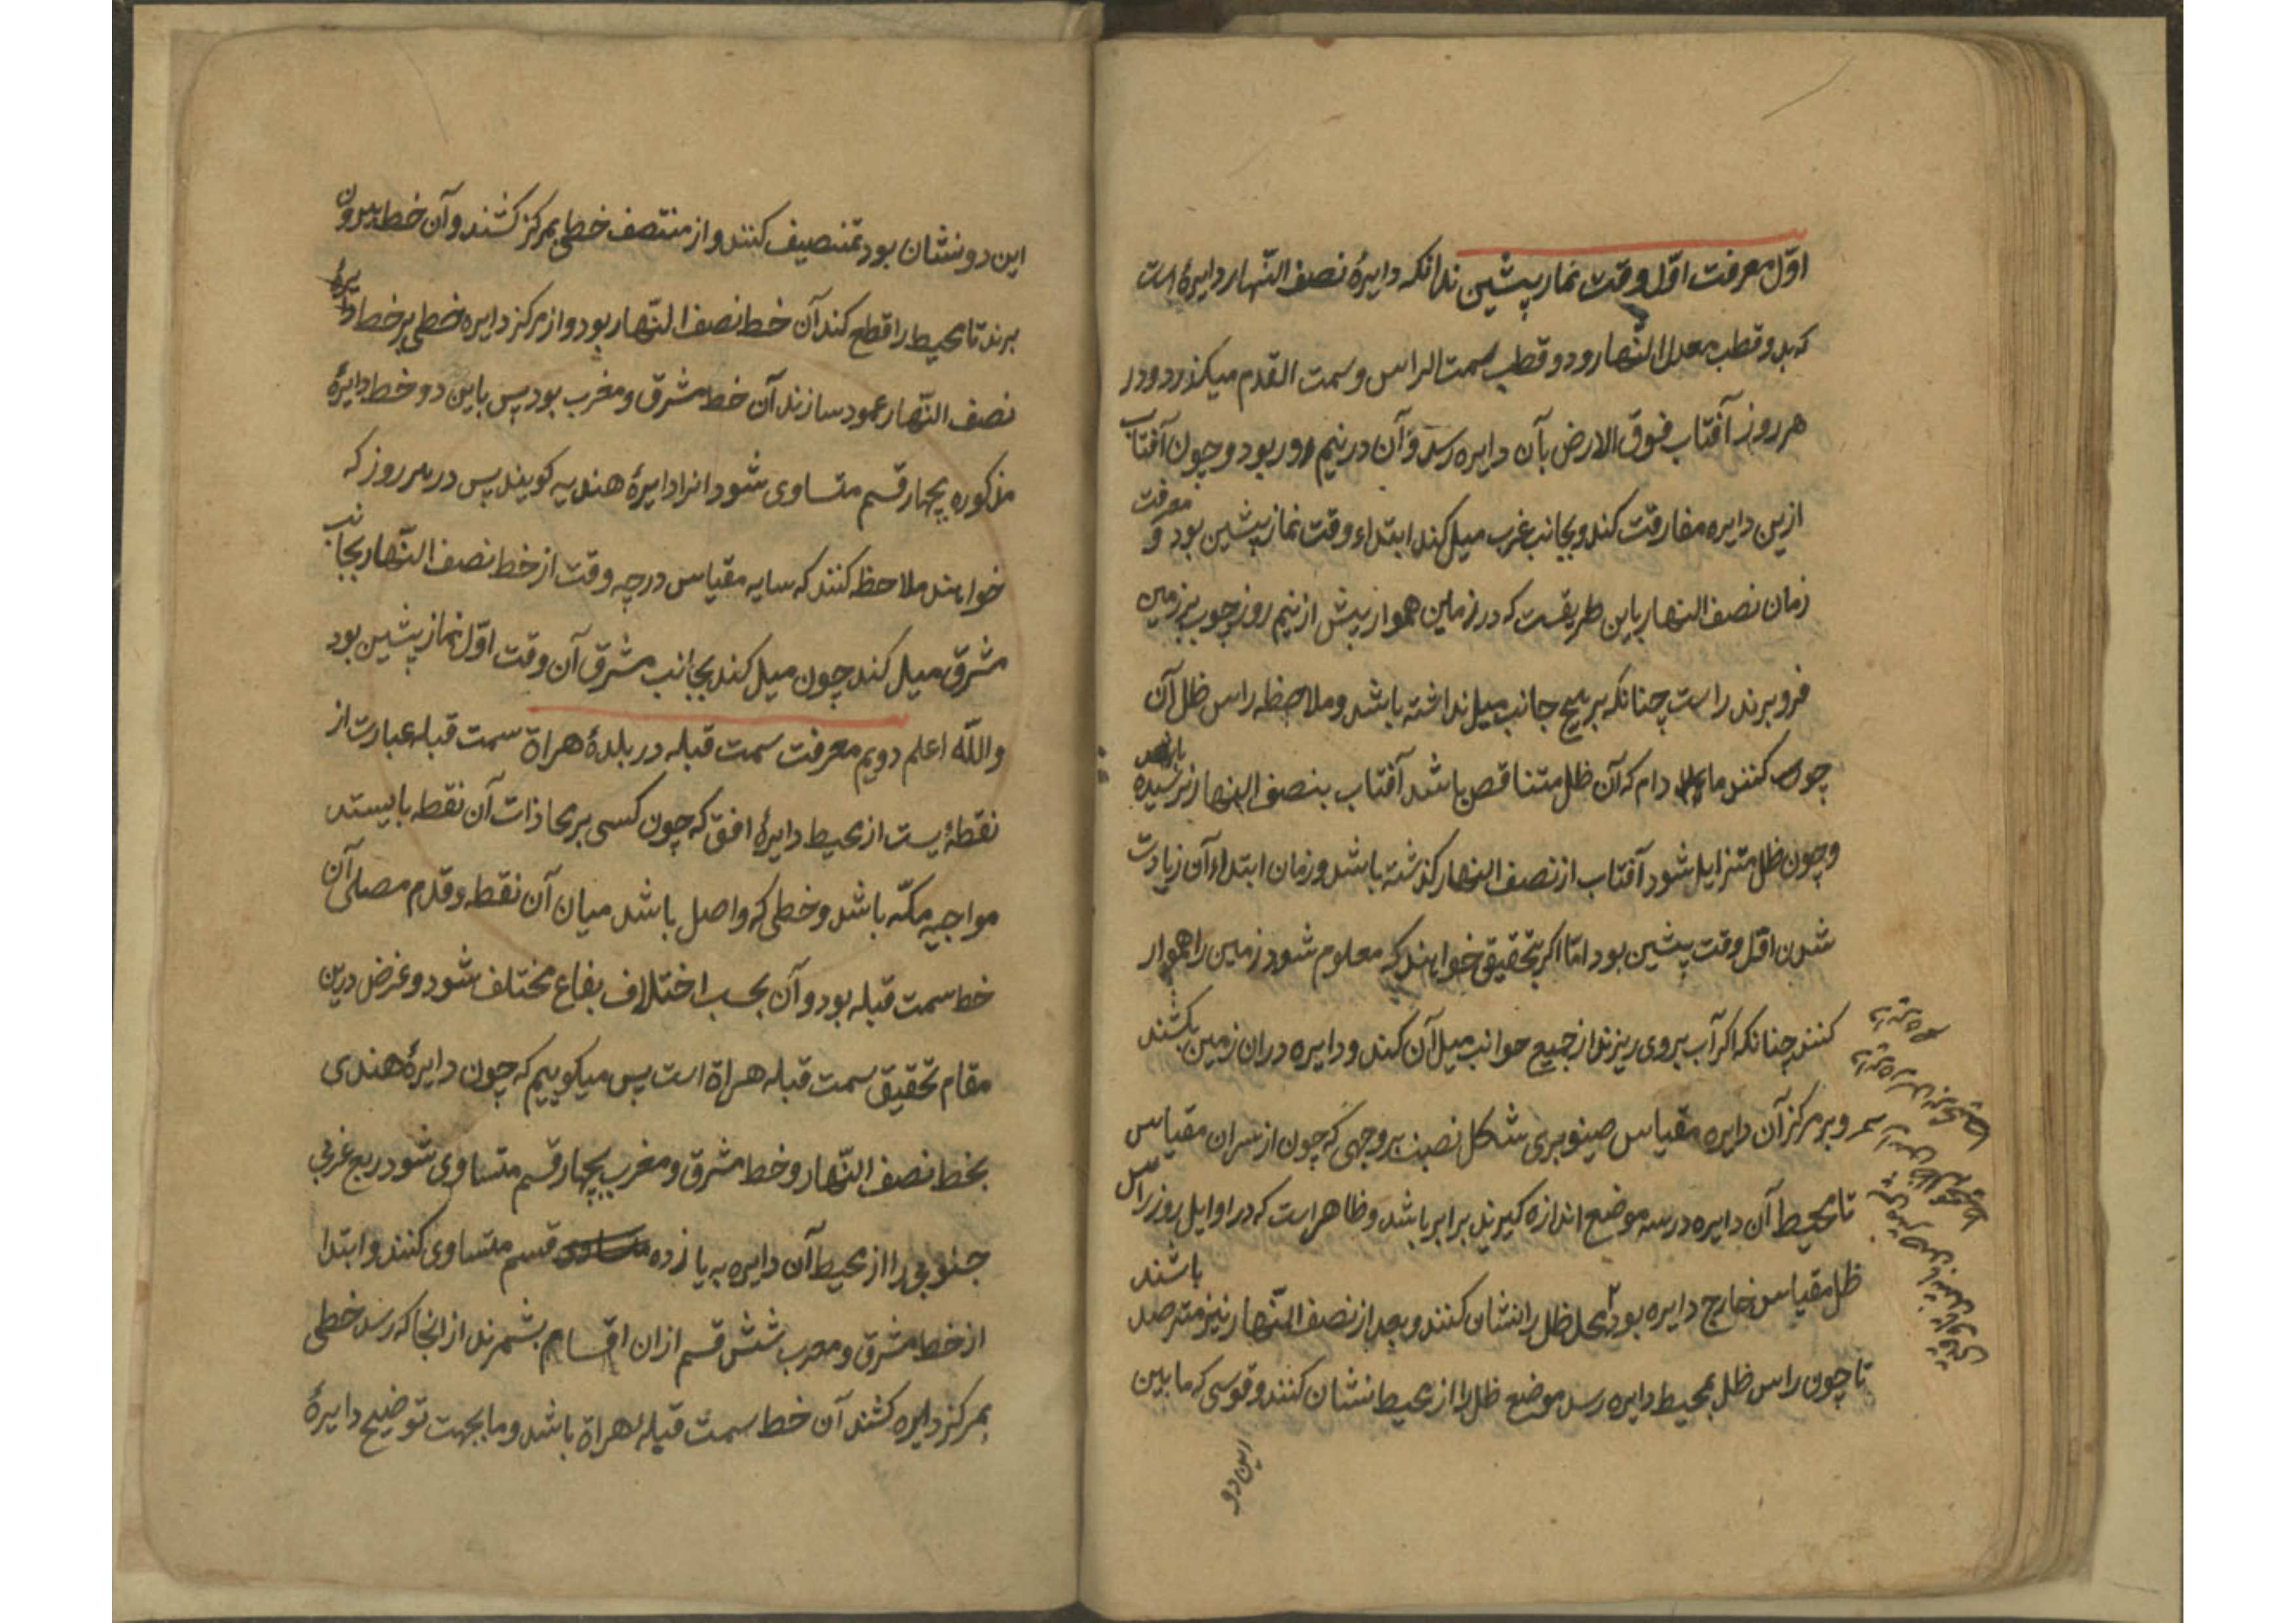 اوّل معرفت اوّل وقت نماز پیشین بدانکه دایرهٔ نصف النّهار دایرهٔ است
که بدو قطب معدل النّهار و دو قطب سمت الراس و سمت القدم میکذرد و در
هر روز آفتاب فوق الارض بآن دایره رسد و آن در نیم روز بود و چون آفتاب
ازین دایره مفارقت کند و بجانب غرب میل کند ابتداء وقت نماز پیشین بود و معرفت
زمان نصف النهار باین طریقست که در زمین هموار پیش از نیم روز چوب بر زمین
فرو برند راست چنانکه بر هیچ جانب میل نداشته باشد و ملاحظه راس ظل آن
چوب کنند مادام که آن ظل متناقص باشد آفتاب بنصف النهار نرسیده باشد
و چون ظل متزاید شود آفتاب از نصف النهار کذشته باشد و زمان ابتداء آن زیادت
شدن اوّل وقت پیشین بود امّا اکر بتحقیق خواهند که معلوم شود زمین را هموار
کنند چنانکه اکر آب بروی ریزند از جمیع جوانب میل آن کند و دایره دران زمین بکشند
و بر مرکز آن دایره مقیاس صنوبری شکل نصب بروجهی که چون از سر آن مقیاس
تا محیط آن دایره در سه موضع اندازه کیرند برابر باشد و ظاهر است که در اوایل روز راس
ظل مقیاس خارج دایره بود محل ظل را نشان کنند و بعد از نصف النّهار نیز مترصد باشند
تا چون راس ظل بمحیط دایره رسد موضع ظل را از محیط نشان کنند و قوسی که مابین
این دو
این دو نشان بود تنصیف کنند و از منتصف خطی بمرکز کشند و آن خط بیرون
برند تا محیط را قطع کند آن خط نصف النّهار بود و از مرکز دایره خطی بر خط دایرهٔ
نصف النّهار عمود سازند آن خط مشرق و مغرب بود پس باین دو خط دایرهٔ
مذکوره بچهار قسم متساوی شود انرا دایرهٔ هندیه کویند پس در هر روز که
خواهند ملاحظه کنند که سایه مقیاس در چه وقت از خط نصف النّهار بجانب
مشرق میل کند چون میل کند بجانب مشرق آن وقت اوّل نماز پیشین بود
واللّه اعلم دویم معرفت سمت قبله در بلدهٔ هراة سمت قبله عبارت از
نقطهٔ یست از محیط دایرهٔ افق که چون کسی بر محاذات آن نقطه بایستد
مواجهه مکّه باشد و خطی که واصل باشد میان آن نقطه و قدم مصلی آن
خط سمت قبله بود و آن بحسب اختلاف بقاع مختلف شود و غرض درین
مقام تحقیق سمت قبله هراة است پس میکوییم که چون دایرهٔ هندی
بخط نصف النّهار و خط مشرق و مغرب بچهار قسم متساوی شود ربع غربی
جنوبی را از محیط آن دایره به یازده قسم متساوی کنند و ابتدا
از خط مشرق و مغرب شش قسم ازان اقسام بشمرند از انجا که رسد خطی
بمرکز دایره کشند آن خط سمت قبلهٔ هراة باشد و ما بجهت توضیح دایرهٔ